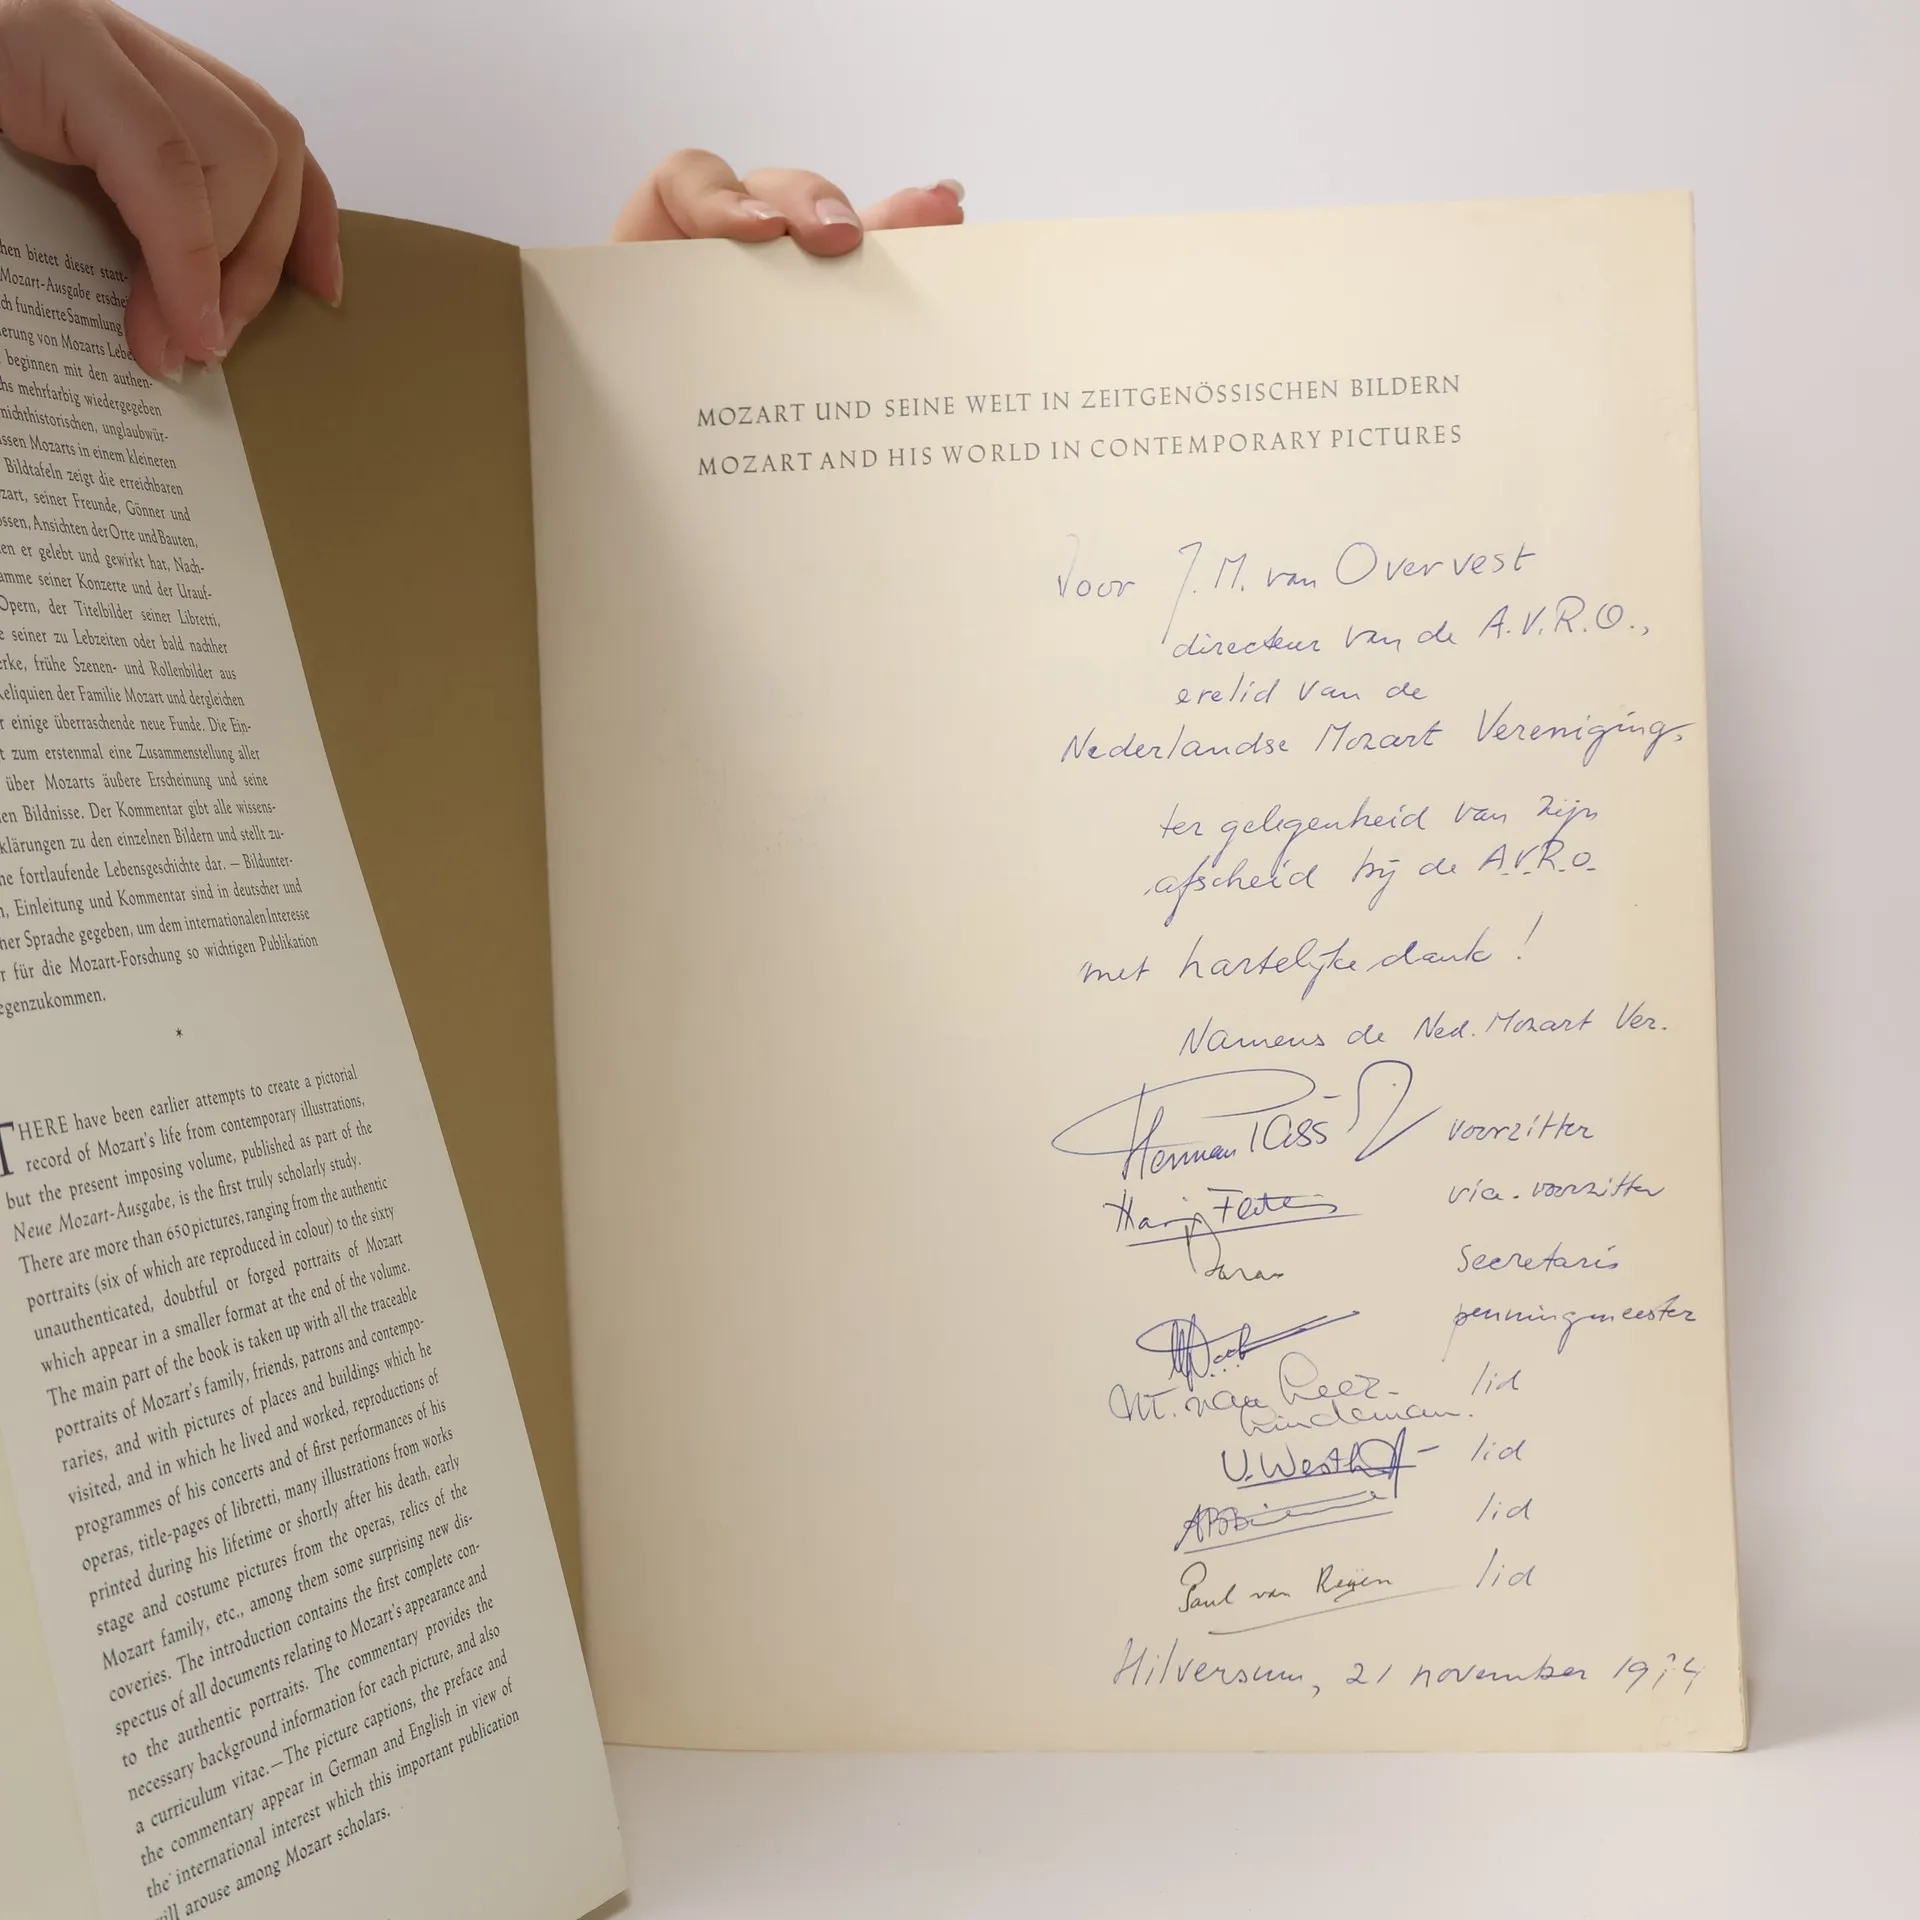 hen bietet dieser statt-
Mozart-Ausgabe erschei
ch fundierte Sammlung
erung von Mozarts Lebe
beginnen mit den authen-
hs mehrfarbig wiedergegeben
nichthistorischen, unglaubwür-
ssen Mozarts in einem kleineren
Bildtafeln zeigt die erreichbaren
zart, seiner Freunde, Gönner und
ossen, Ansichten der Orte und Bauten,
en er gelebt und gewirkt hat, Nach-
amme seiner Konzerte und der Urauf-
Opern, der Titelbilder seiner Libretti,
e seiner zu Lebzeiten oder bald nachher
erke, frühe Szenen- und Rollenbilder aus
Reliquien der Familie Mozart und dergleichen
r einige überraschende neue Funde. Die Ein-
t zum erstenmal eine Zusammenstellung aller
über Mozarts äußere Erscheinung und seine
en Bildnisse. Der Kommentar gibt alle wissens-
klärungen zu den einzelnen Bildern und stellt zu-
ne fortlaufende Lebensgeschichte dar. — Bildunter-
n, Einleitung und Kommentar sind in deutscher und
her Sprache gegeben, um dem internationalen Interesse
r für die Mozart-Forschung so wichtigen Publikation
egenzukommen.
*
THERE have been earlier attempts to create a pictorial
record of Mozart's life from contemporary illustrations,
but the present imposing volume, published as part of the
Neue Mozart-Ausgabe, is the first truly scholarly study.
There are more than 650 pictures, ranging from the authentic
portraits (six of which are reproduced in colour) to the sixty
unauthenticated, doubtful or forged portraits of Mozart
which appear in a smaller format at the end of the volume.
The main part of the book is taken up with all the traceable
portraits of Mozart's family, friends, patrons and contempo-
raries, and with pictures of places and buildings which he
visited, and in which he lived and worked, reproductions of
programmes of his concerts and of first performances of his
operas, title-pages of libretti, many illustrations from works
printed during his lifetime or shortly after his death, early
stage and costume pictures from the operas, relics of the
Mozart family, etc., among them some surprising new dis-
coveries. The introduction contains the first complete con-
spectus of all documents relating to Mozart's appearance and
to the authentic portraits. The commentary provides the
necessary background information for each picture, and also
a curriculum vitae. — The picture captions, the preface and
the commentary appear in German and English in view of
the international interest which this important publication
will arouse among Mozart scholars.
MOZART UND SEINE WELT IN ZEITGENÖSSISCHEN BILDERN
MOZART AND HIS WORLD IN CONTEMPORARY PICTURES
Voor J. M. van Overvest
directeur van de A.V.R.O.,
erelid van de
Nederlandse Mozart Vereniging,
ter gelegenheid van zijn
afscheid bij de A.V.R.O.
met hartelijke dank!
Namens de Ned. Mozart Ver.
Herman voorzitter
vice-voorzitter
secretaris
penningmeester
M. van Leer- lid
Lindeman.
lid
lid
Paul van Reijen lid
Hilversum, 21 november 1974